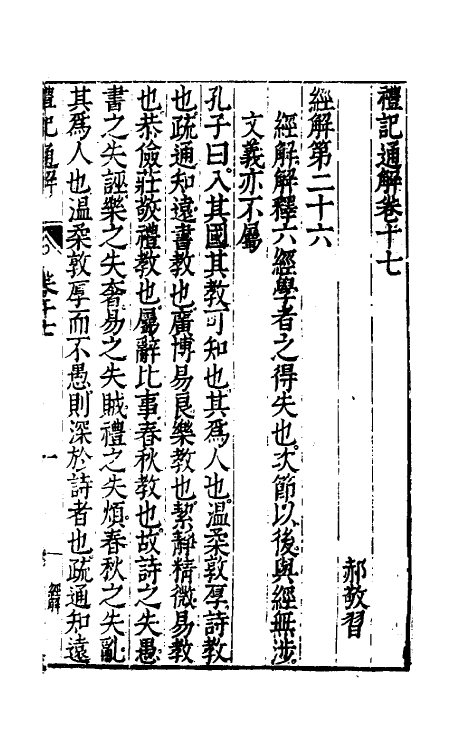 禮記通解卷十七
郝敬習
經解第二十六
經解解釋六經學者之得失也次節以後與經無涉
文義亦不屬
孔子曰入其國其教可知也其爲人也溫柔敦厚詩教
也疏通知遠書教也廣博易良樂教也絜靜精微易教
也恭儉莊敬禮教也屬辭比事春秋教也故詩之失愚
書之失誣樂之失奢易之失賊禮之失煩春秋之失亂
其爲人也溫柔敦厚而不愚則深於詩者也疏通知遠
禮記通解
卷十七
一
經解